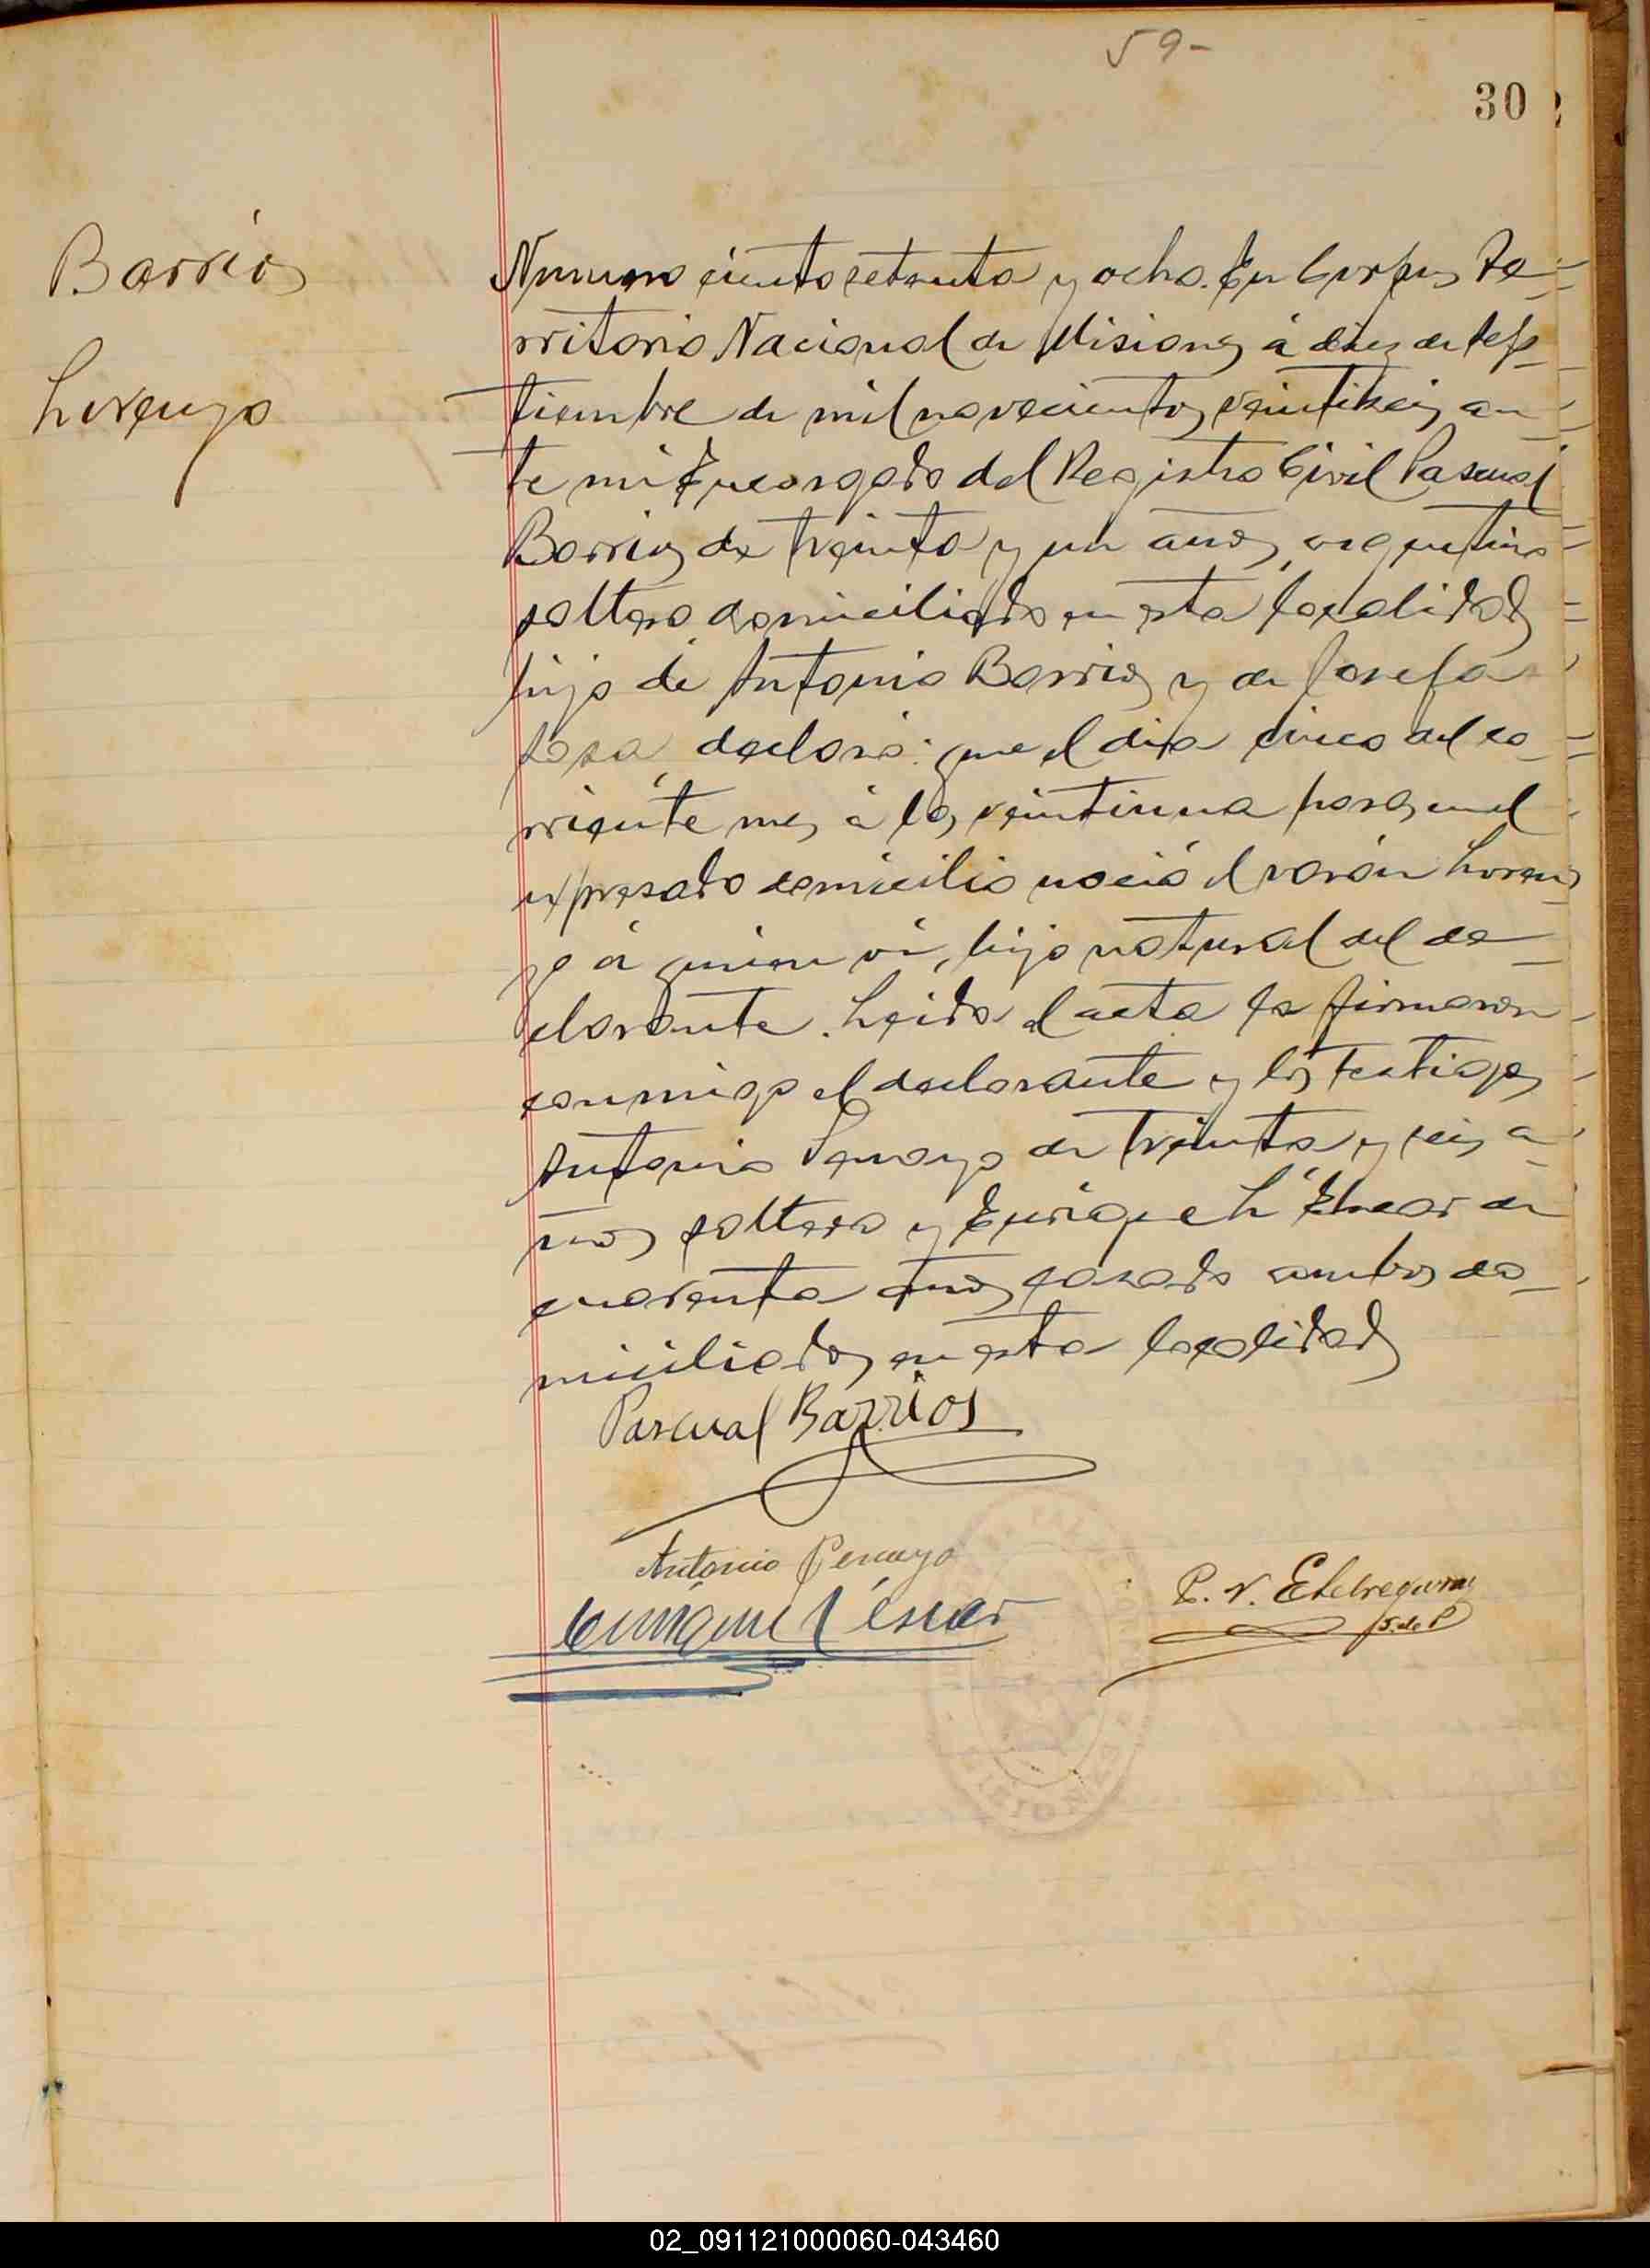 59-
30
Barrios
Lorenzo
Numero ciento setenta y ocho. En Corpus Te-
rritorio Nacional de Misiones, á diez de Sep-
tiembre de mil novecientos veintiseis, an-
te mi Encargado del Registro Civil Pascual
Barrios de treinta y un años, argentino
soltero domiciliado en esta localidad
hijo de Antonio Barrios y de Josefa
Sosa, declaró: que el dia cinco del co-
rriente mes á las veintiuna horas, en el
expresado domicilio nació el varón Loren-
zo á quien vi, hijo natural del de-
clarante. Leida el acta la firmaron
conmigo el declarante y los testigos
Antonio de treinta y seis a-
ños soltero y Enrique L de
cuarenta años casado ambos do-
miciliados en esta localidad
Pascual Barrios
Antonio
Enrique L
P. V.
J. de P
MISIONES
02_091121000060-043460